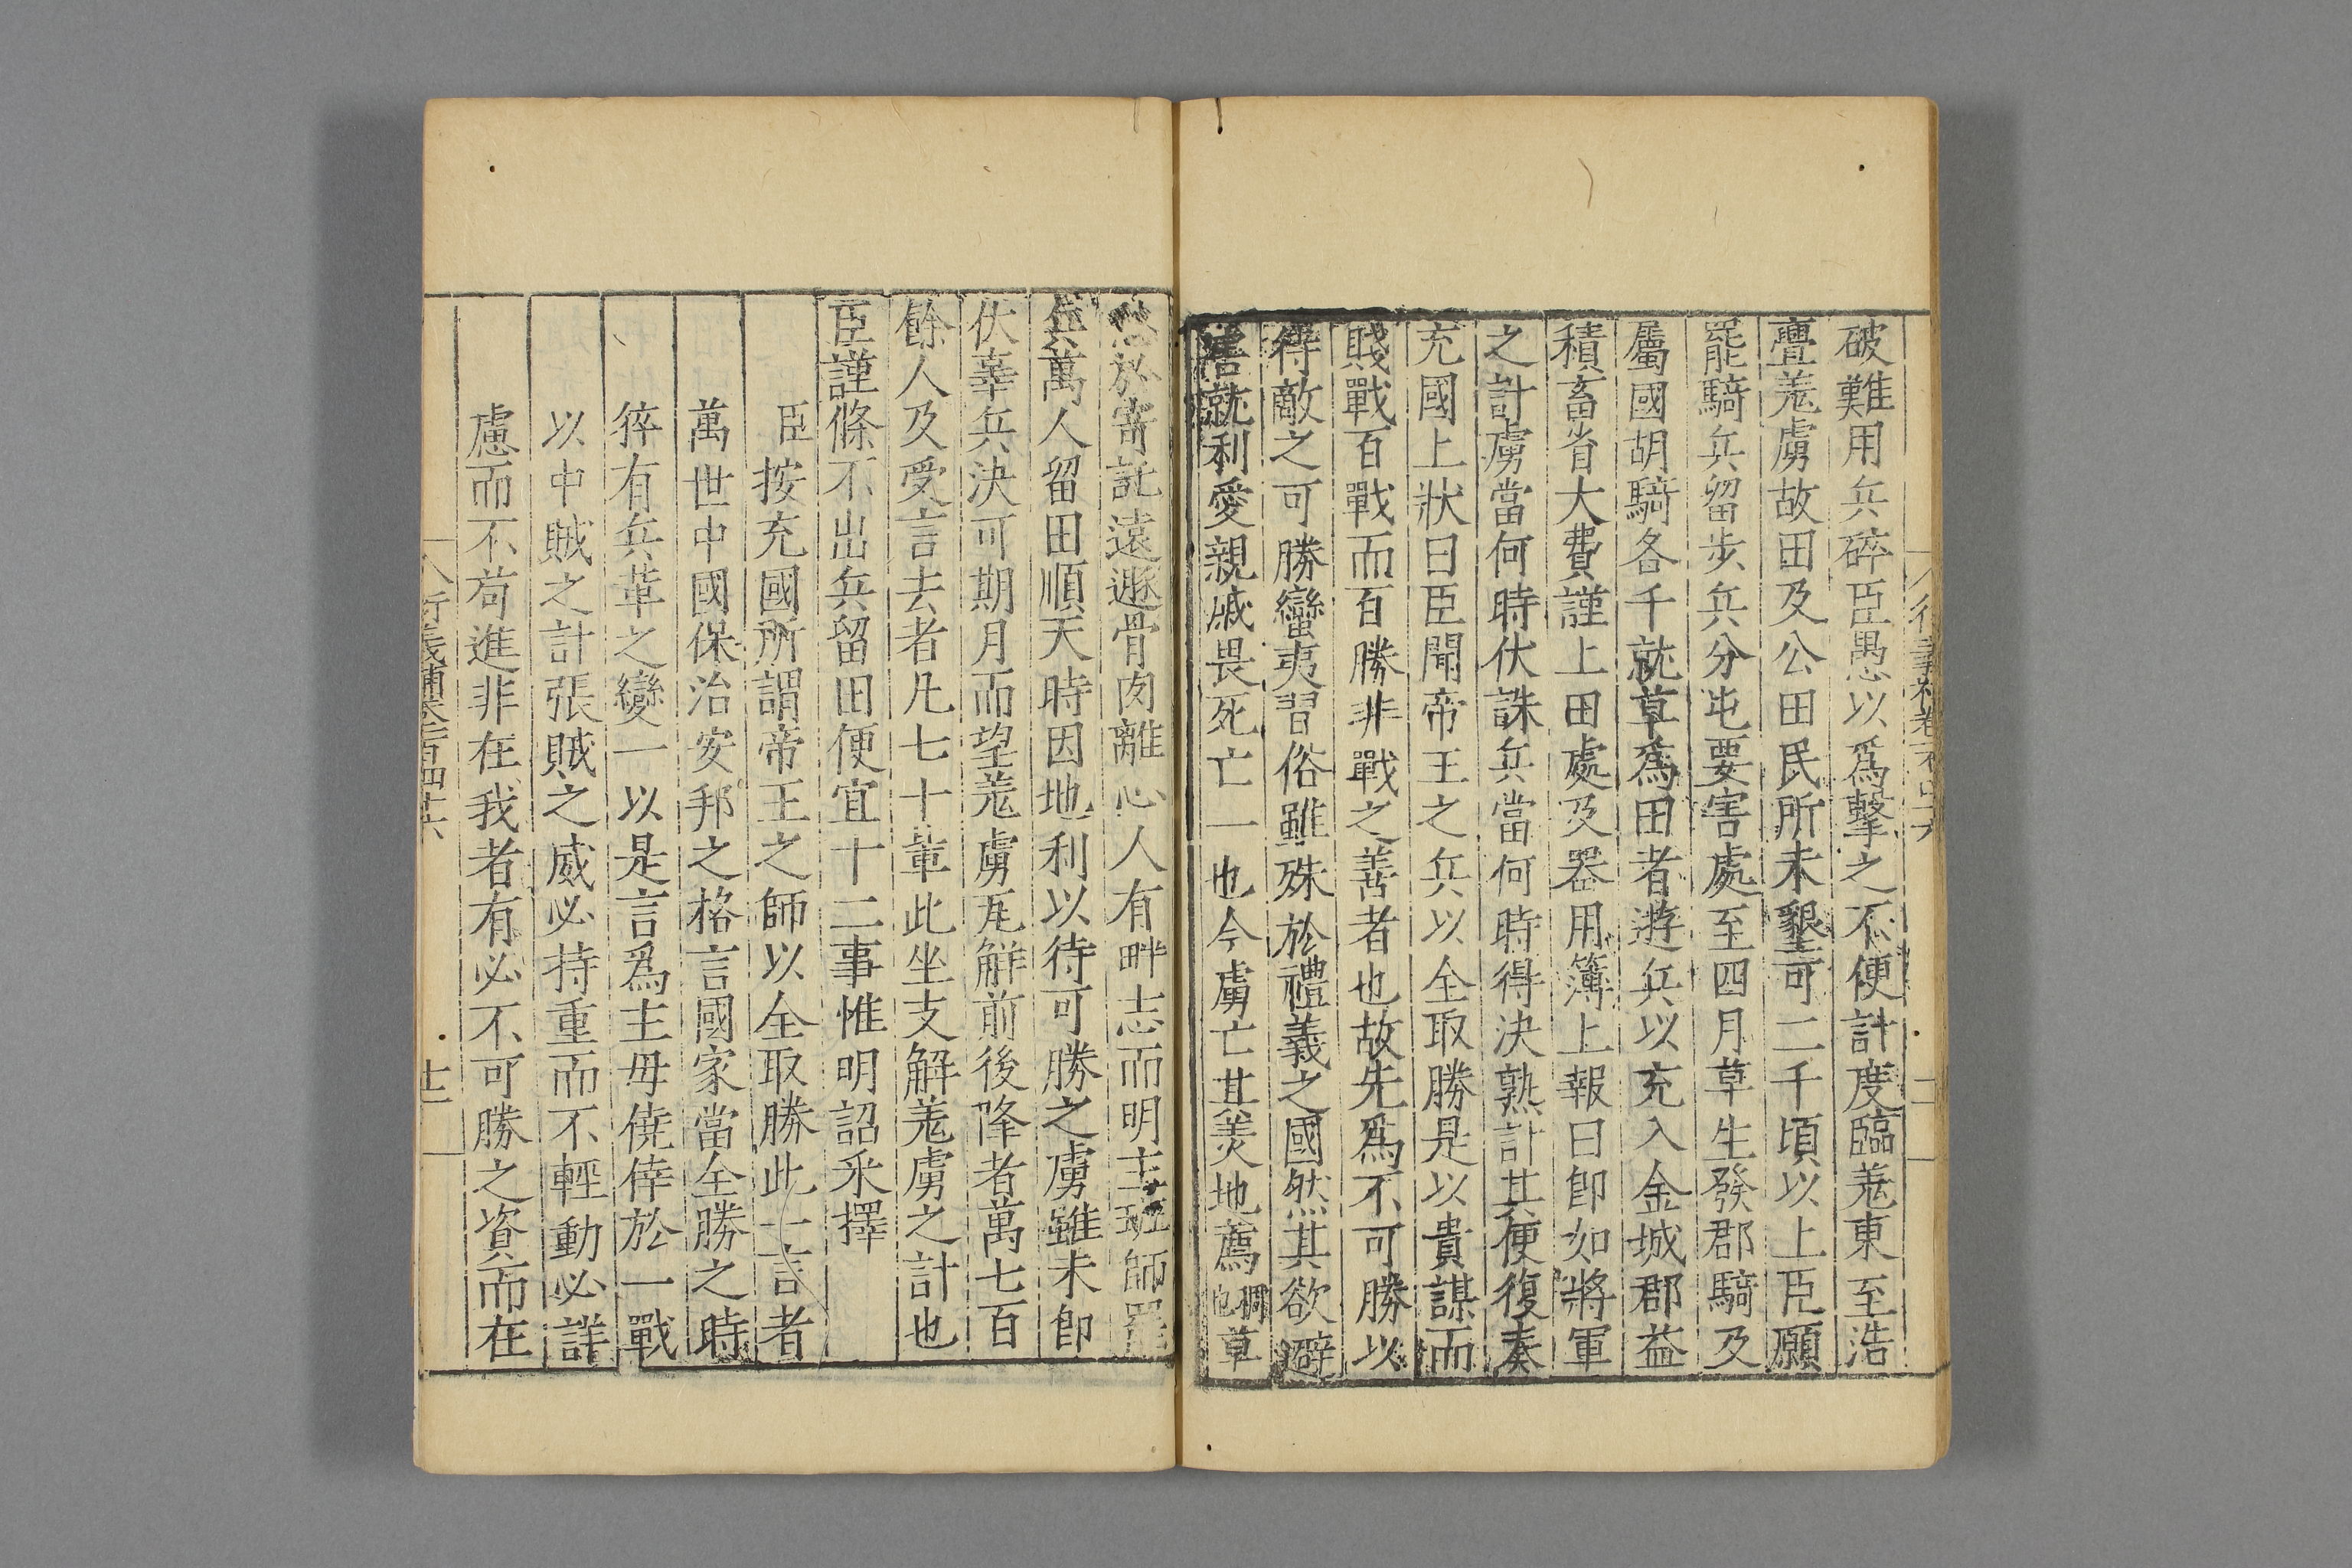 破難用兵碎臣愚以爲擊之不便計度臨羗東至浩
亹羗虜故田及公田民所未墾可二千頃以上臣願
罷騎兵留步兵分屯要害處至四月草生發郡騎及
屬國胡騎各千就草爲田者遊兵以充入金城郡益
積畜省大費謹上田處及器用簿上報曰卽如將軍
之計虜當何時伏誅兵當何時得決熟計其便復奏
充國上狀曰臣聞帝王之兵以全取勝是以貴謀而
賤戰百戰而百勝非戰之善者也故先爲不可勝以
待敵之可勝蠻夷習俗雖殊於禮義之國然其欲避
害就利愛親戚畏死亡一也今虜亡其羙地薦稠也草
愁於寄託遠遯骨肉離心人有畔志而明主班師罷
兵萬人留田順天時因地利以待可勝之虜雖未卽
伏辜兵決可期月而望羗虜瓦解前後降者萬七百
餘人及受言去者凡七十輩此坐支解羗虜之計也
臣謹條不出兵留田便宜十二事惟明詔采擇
臣按充國所謂帝王之師以全取勝此一言者
萬世中國保治安邦之格言國家當全勝之時
猝有兵革之變一以是言爲主毋僥倖於一戰
以中賊之計張賊之威必持重而不輕動必詳
慮而不苟進非在我者有必不可勝之資而在